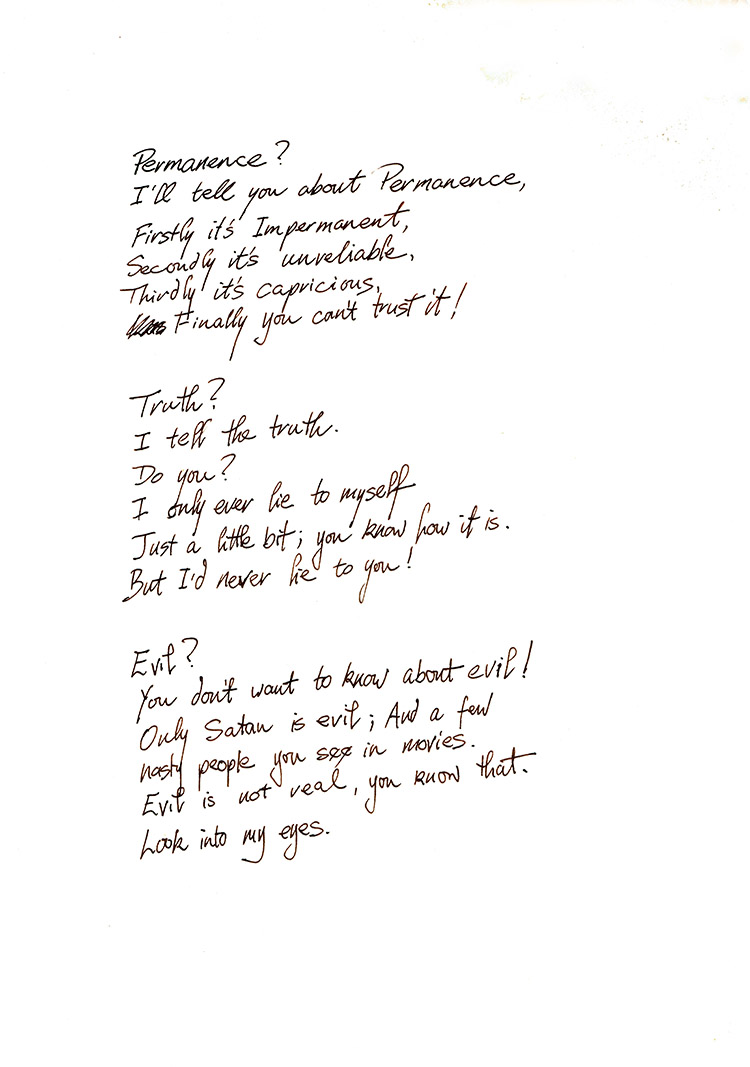 Permanence?
I'll tell you about Permanence,
Firstly it's Impermanent,
Secondly it's unreliable,
Thirdly it's capricious,
Finally you can't trust it!
Truth?
I tell the truth.
Do you?
I only ever lie to myself
Just a little bit; you know how it is.
But I'd never lie to you!
Evil?
You don't want to know about evil!
Only Satan is evil; And a few
nasty people you see in movies.
Evil is not real, you know that.
Look into my eyes.